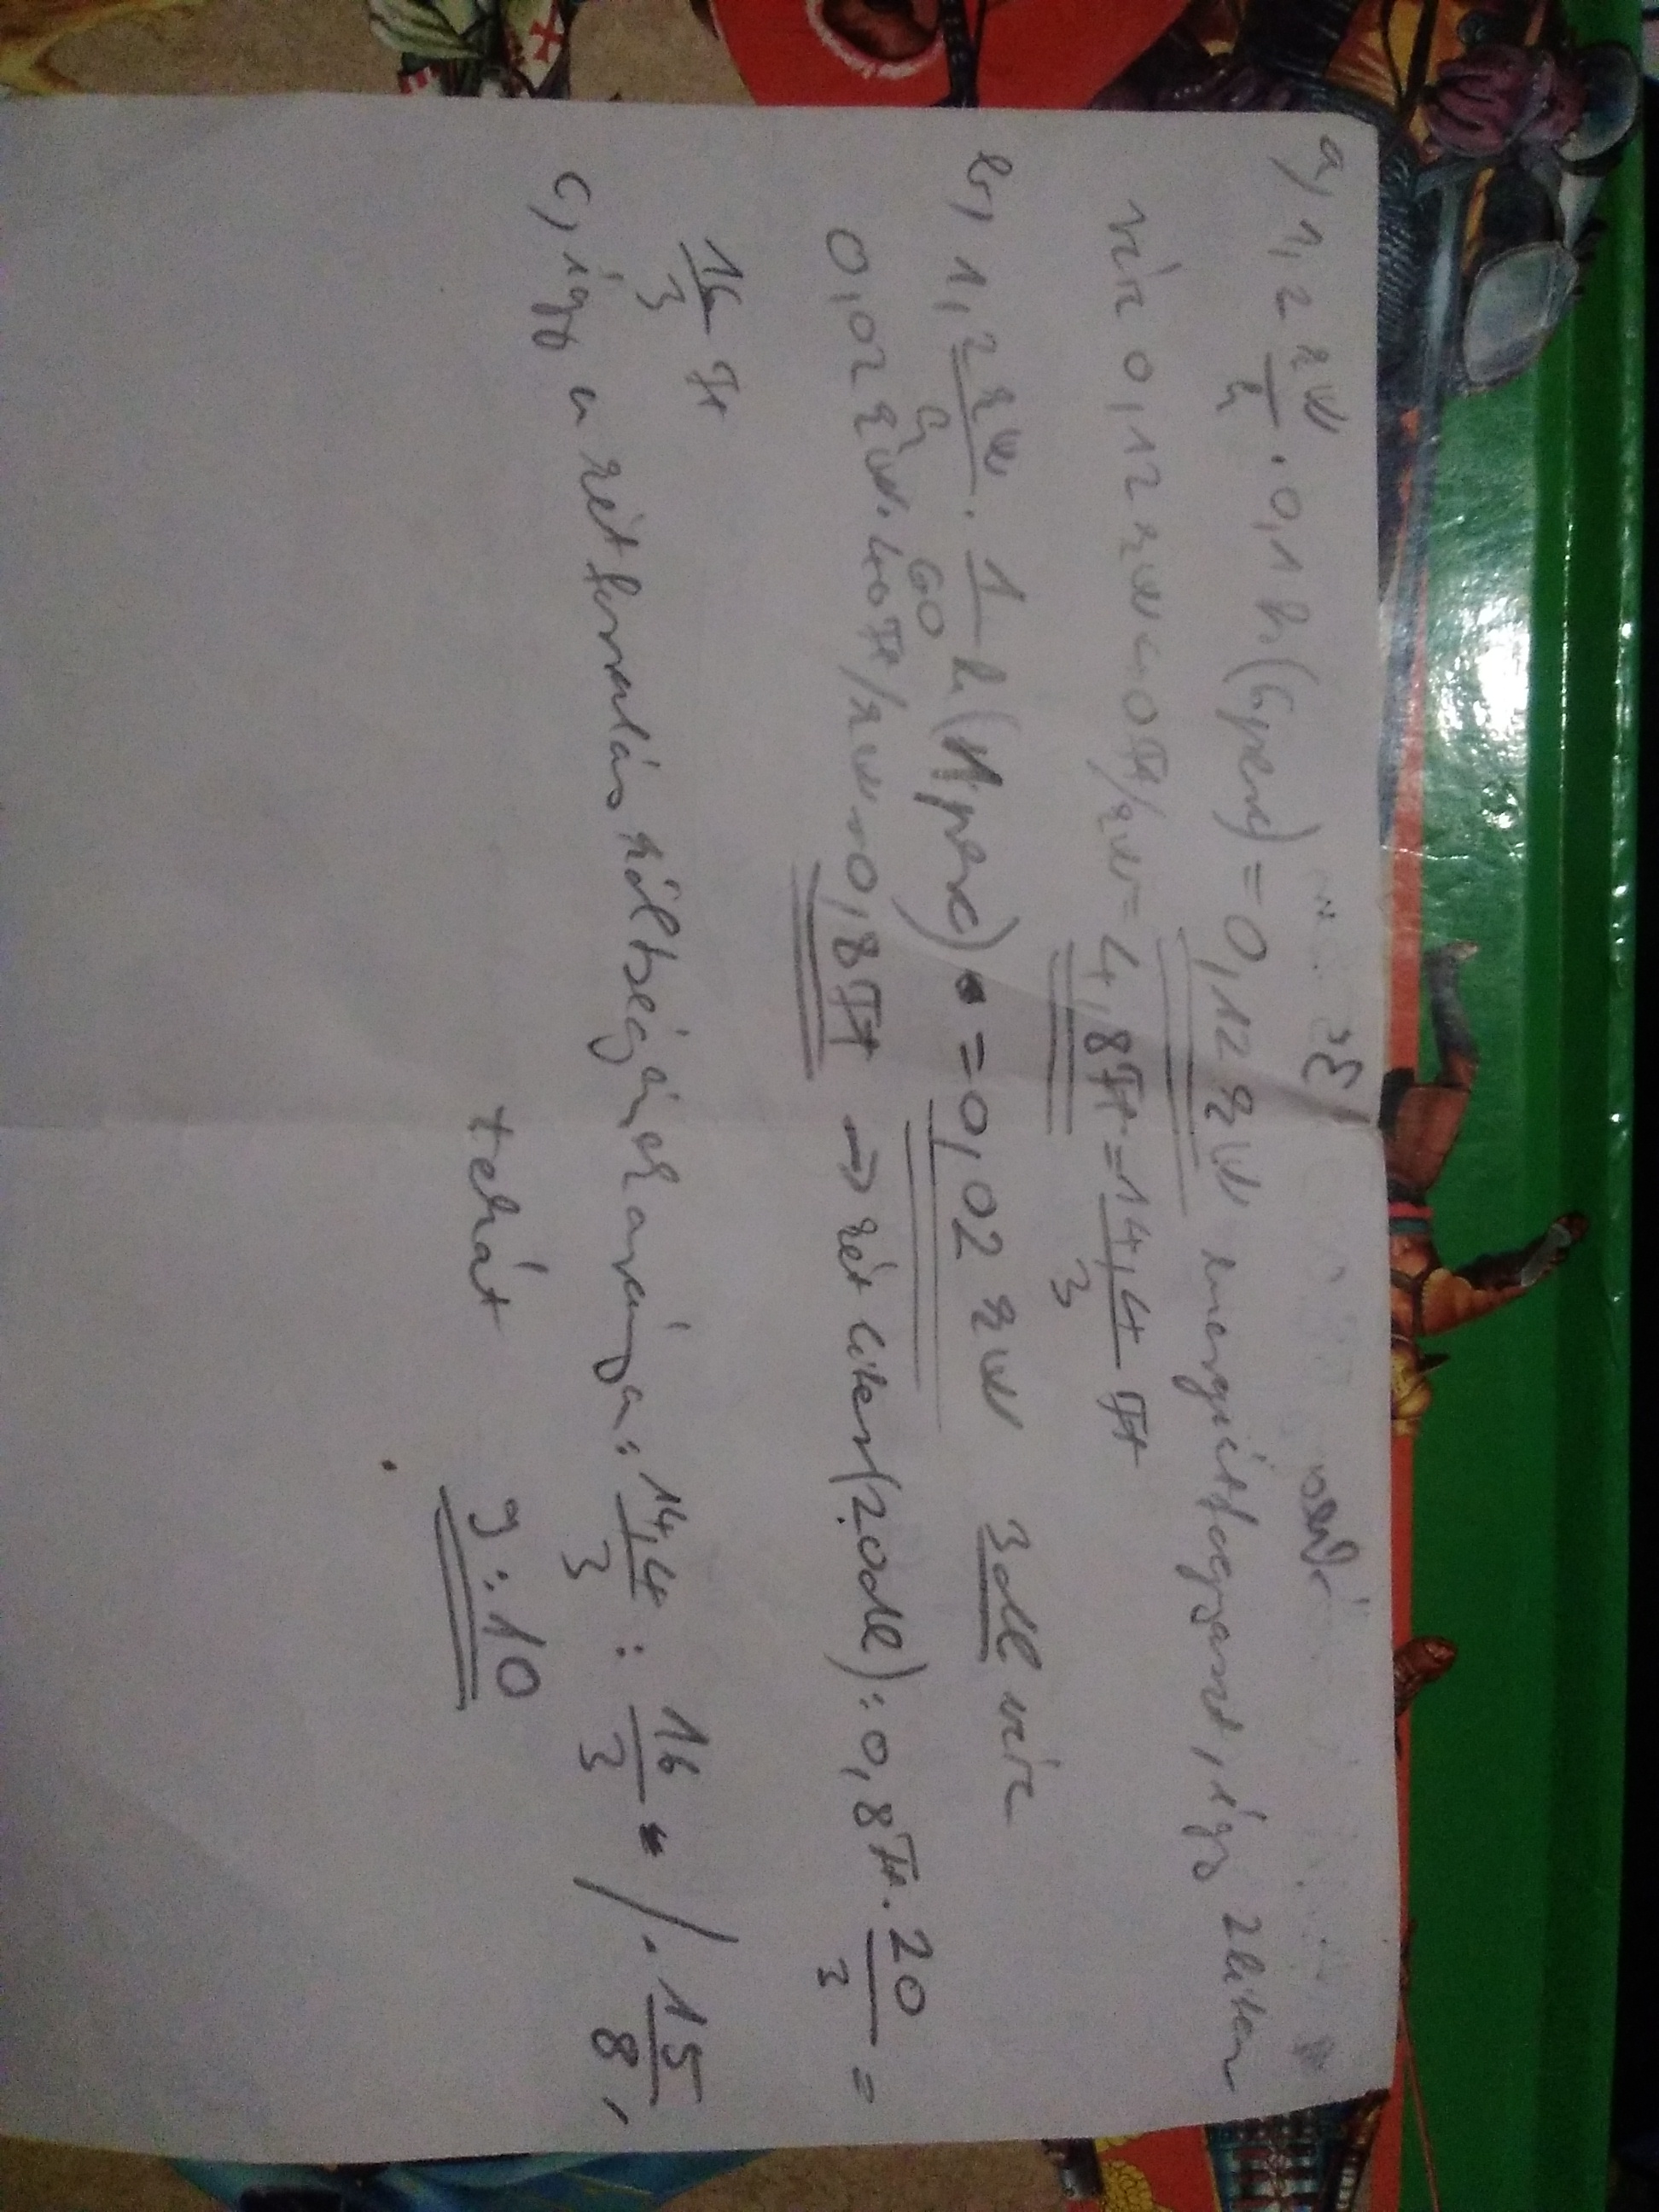 a, 1,2 kW/h · 0,1 h (6 perc) = 0,12 kW energiát fogyaszt, így 2 liter
víz 0,12 kW · 40 Ft/kW = 4,8 Ft = 14,4/3 Ft
b, 1,2 kW/h · 1/60 h (1 perc) = 0,02 kW 3 dl víz
0,02 kW · 40 Ft/kW = 0,8 Ft → két liter (20 dl): 0,8 Ft · 20/3 =
16/3 Ft
c, így a két forralás költségének aránya: 14,4/3 : 16/3 / · 15/8,
tehát 9:10